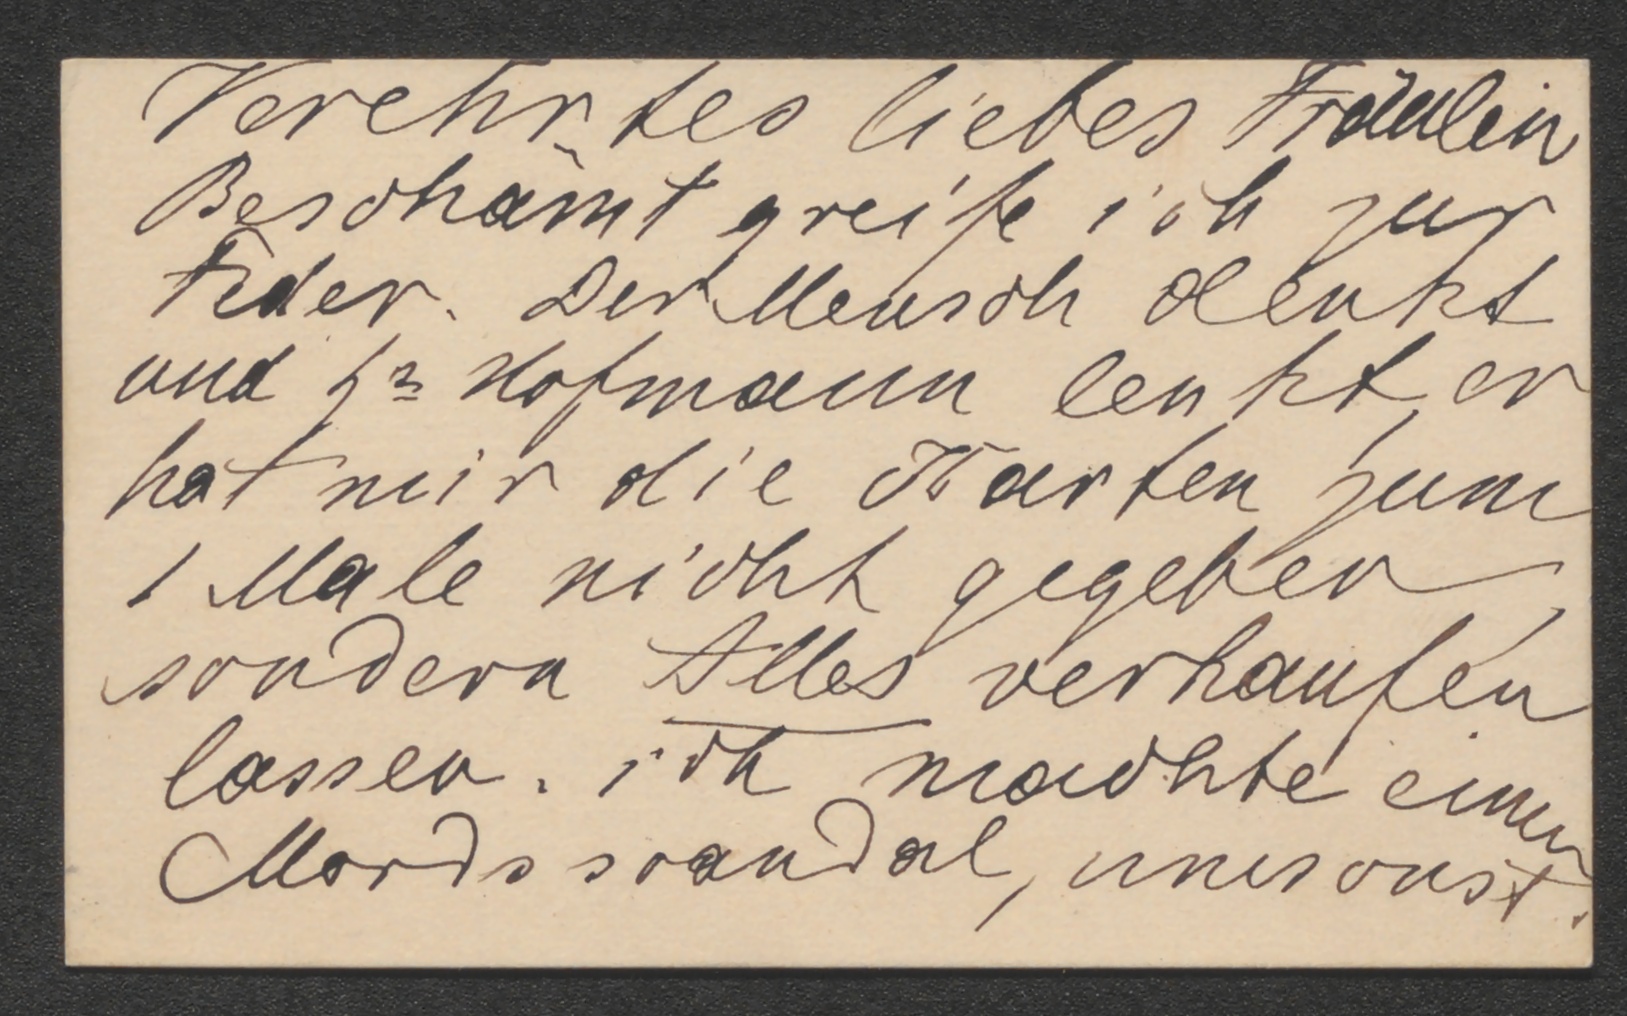 Verehrtes liebes Fräulein
Beschämt greife ich zur
Feder. Der Mensch denkt
und Hr Hofmann lenkt, er
hat mir die Karten zum
1 Male nicht gegeben,
sondern Alles verkaufen
lassen. ich machte einen
Mordsscandal, umsonst.